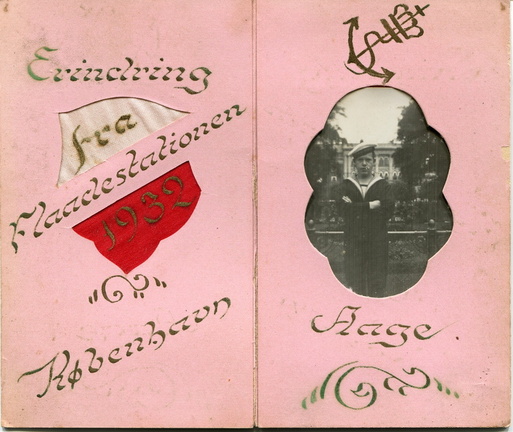 Erindring
fra
Flaadestationen
1932
København
Aage